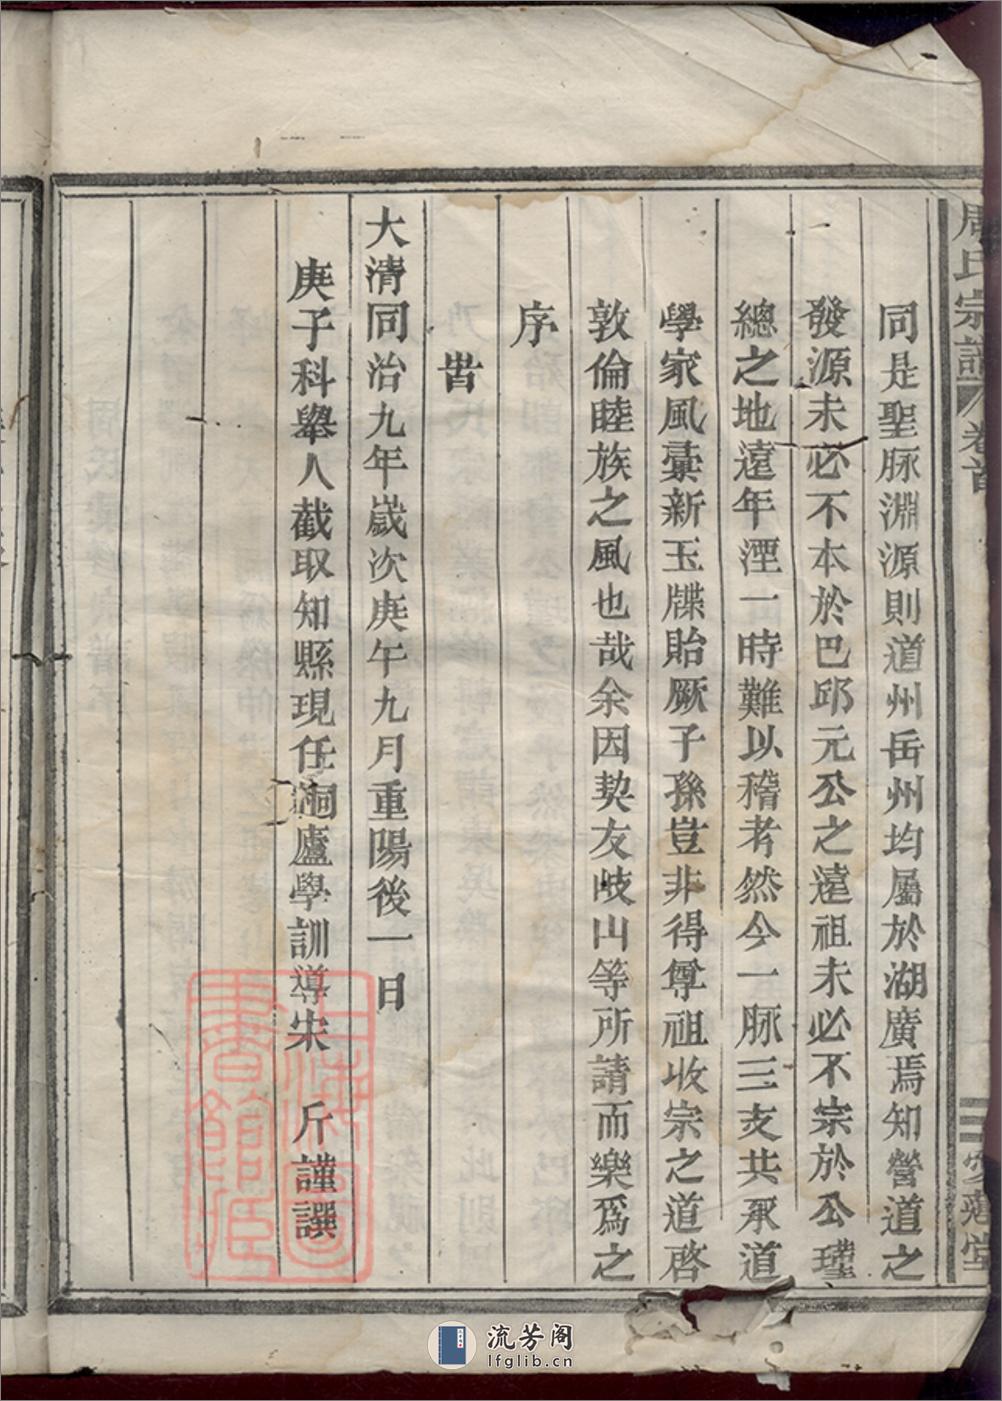 周氏宗譜 卷首 愛蓮堂
同是聖脈淵源則道州岳州均屬於湖廣焉知營道之
發源未必不本於巴邱元公之遠祖未必不宗於公瑾
總之地遠年湮一時難以稽考然今一脈三支共承道
學家風彚新玉牒貽厥子孫豈非得尊祖收宗之道啓
敦倫睦族之風也哉余因契友岐山等所請而樂爲之
序
旹
大清同治九年歲次庚午九月重陽後一日
庚子科舉人截取知縣現任桐廬學訓導宋 斤謹譔
上海圖書館藏
流芳阁
lfglib.cn